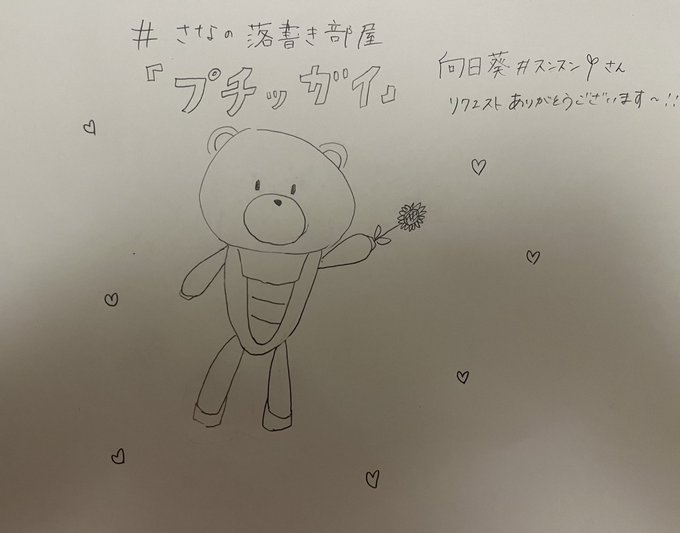 # さなの落書き部屋
『プチッガイ』
向日葵#スンスンさん
リクエストありがとうございます〜!!